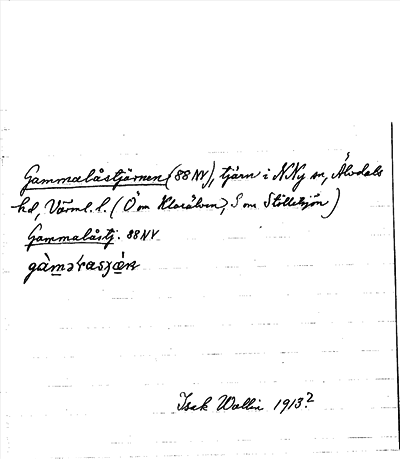 Gammalåstjärnen (88 NV), tjärn i N Ny sn, Älvdals
hd, Värml. l. (Ö om Klarälven, S om Stöllesjön)
Gammalåstj. 88 NV
Isak Wallin 1913?